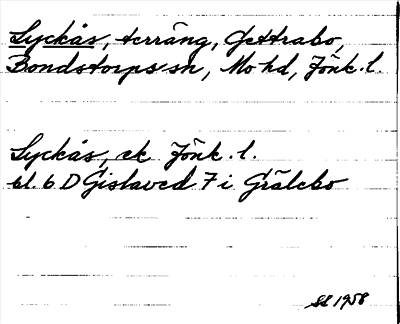 Lyckås, terräng, Gettrabo,
Bondstorps sn, Mo hd, Jönk. l.
Lyckås, ek Jönk. l.
bl. 6 D Gislaved 7 i Grälebo
SS 1958